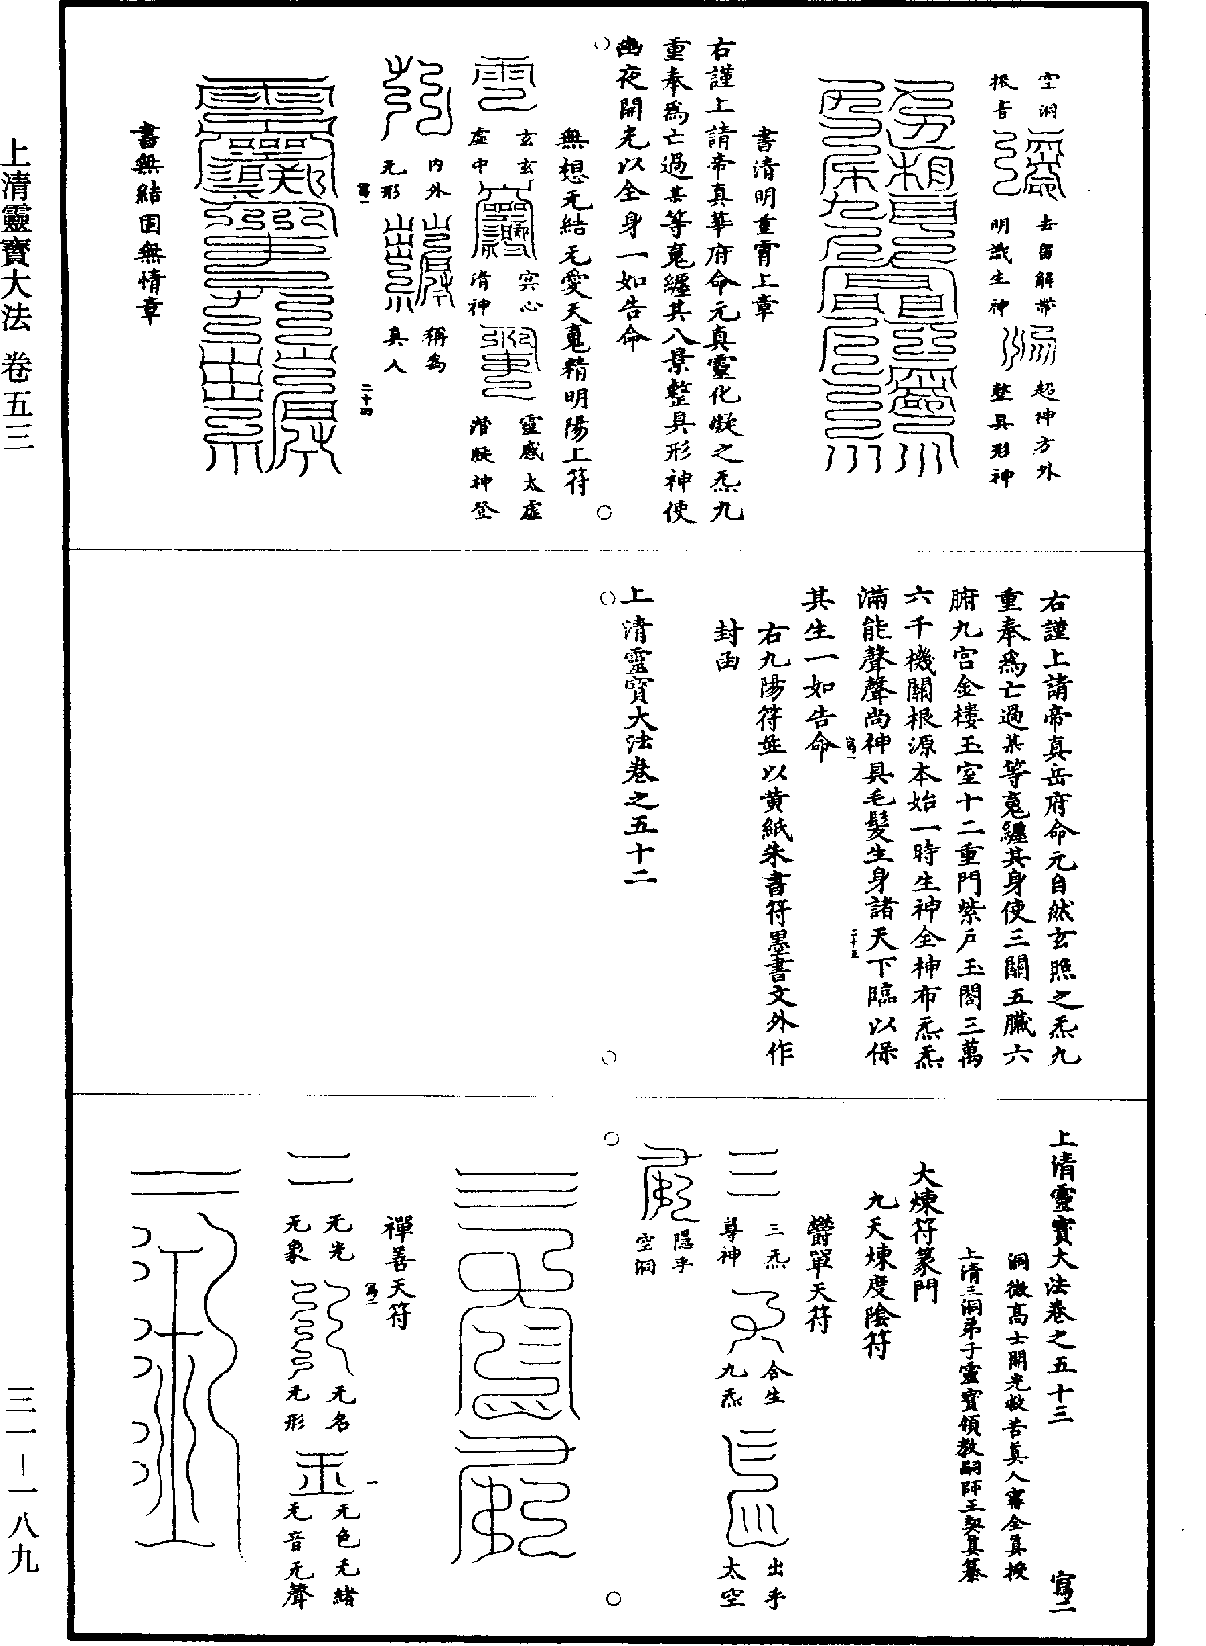 空洞
披音
去留解帶
明識生神
超神方外
整具形神
書清明重霄上章
右謹上請帝真華府命元真靈化凝之炁九
重奉為亡過某等䰟纏其八景整具形神使
幽夜開光以全身一如告命
無想无結无愛天䰟精明陽上符
玄玄
虛中
寞心
清神
靈感太虛
潛凝神登
內外
无形
稱為
真人
寫一
二十四
書無結固無情章
右謹上請帝真岳府命元自然玄照之炁九
重奉為亡過某等䰟纏其身使三關五臟六
腑九宮金樓玉室十二重門紫戶玉閣三萬
六千機關根源本始一時生神全神布炁炁
滿能聲聲尚神具毛髮生身諸天下臨以保
寫一
二十五
其生一如告命
右九陽符並以黃紙朱書符墨書文外作
封函
上清靈寶大法卷之五十二
上清靈寶大法卷之五十三
寫二
洞微高士開光救苦真人甯全真授
上清三洞弟子靈寶領教嗣師王契真纂
大煉符篆門
九天煉度陰符
鬱單天符
三炁
尊神
合生
九炁
出乎
太空
隱乎
空洞
禪善天符
寫二
一
无光
无象
无名
无形
无色无緒
无音无聲
上清靈寶大法 卷五三
三一－一八九